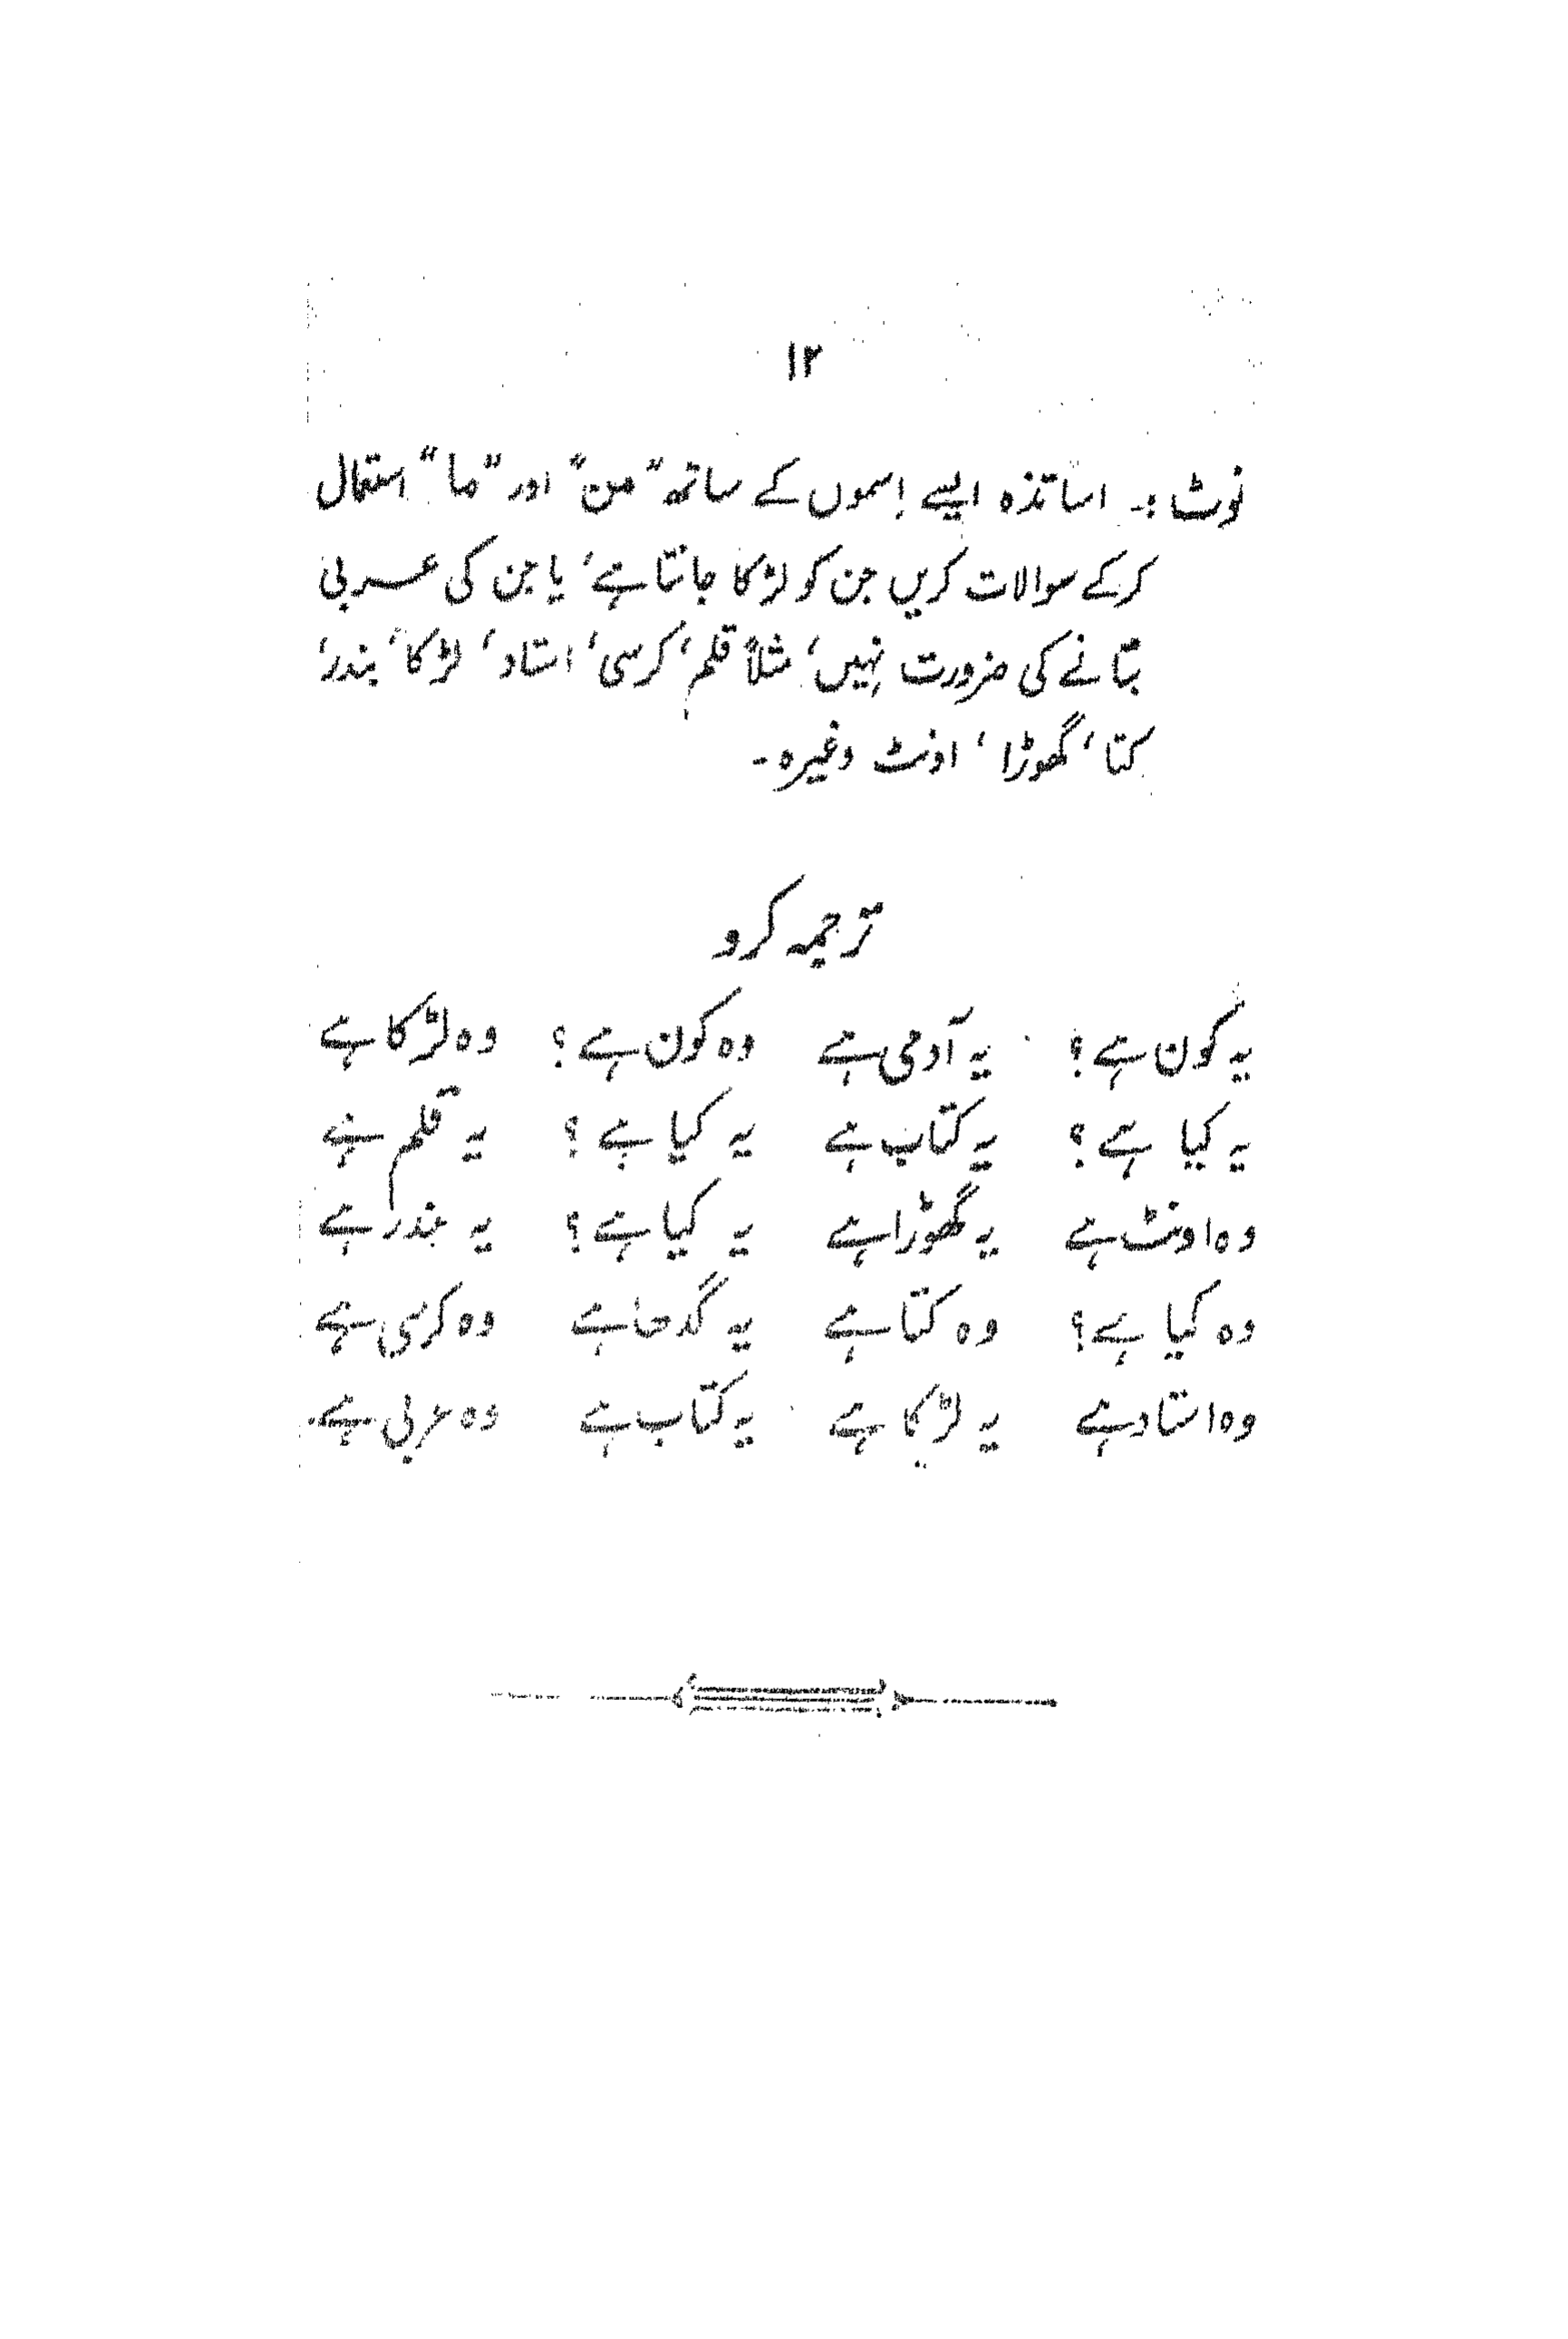 ۱۲
نوٹ :۔ اساتذہ ایسے اِسموں کے ساتھ "من" اور "ما" استعمال
کرکے سوالات کریں جن کو لڑکا جانتا ہے، یا جن کی عربی
بتانے کی ضرورت نہیں، مثلاً قلم، کرسی، استاد، لڑکا، بندر،
کتا، گھوڑا، اونٹ وغیرہ۔
ترجمہ کرو
یہ کون ہے؟ یہ آدمی ہے وہ کون ہے؟ وہ لڑکا ہے
یہ کیا ہے؟ یہ کتاب ہے یہ کیا ہے؟ یہ قلم ہے
وہ اونٹ ہے یہ گھوڑا ہے یہ کیا ہے؟ یہ بندر ہے
وہ کیا ہے؟ وہ کتا ہے یہ گدھا ہے وہ کرسی ہے
وہ استاد ہے یہ لڑکا ہے یہ کتاب ہے وہ عربی ہے۔